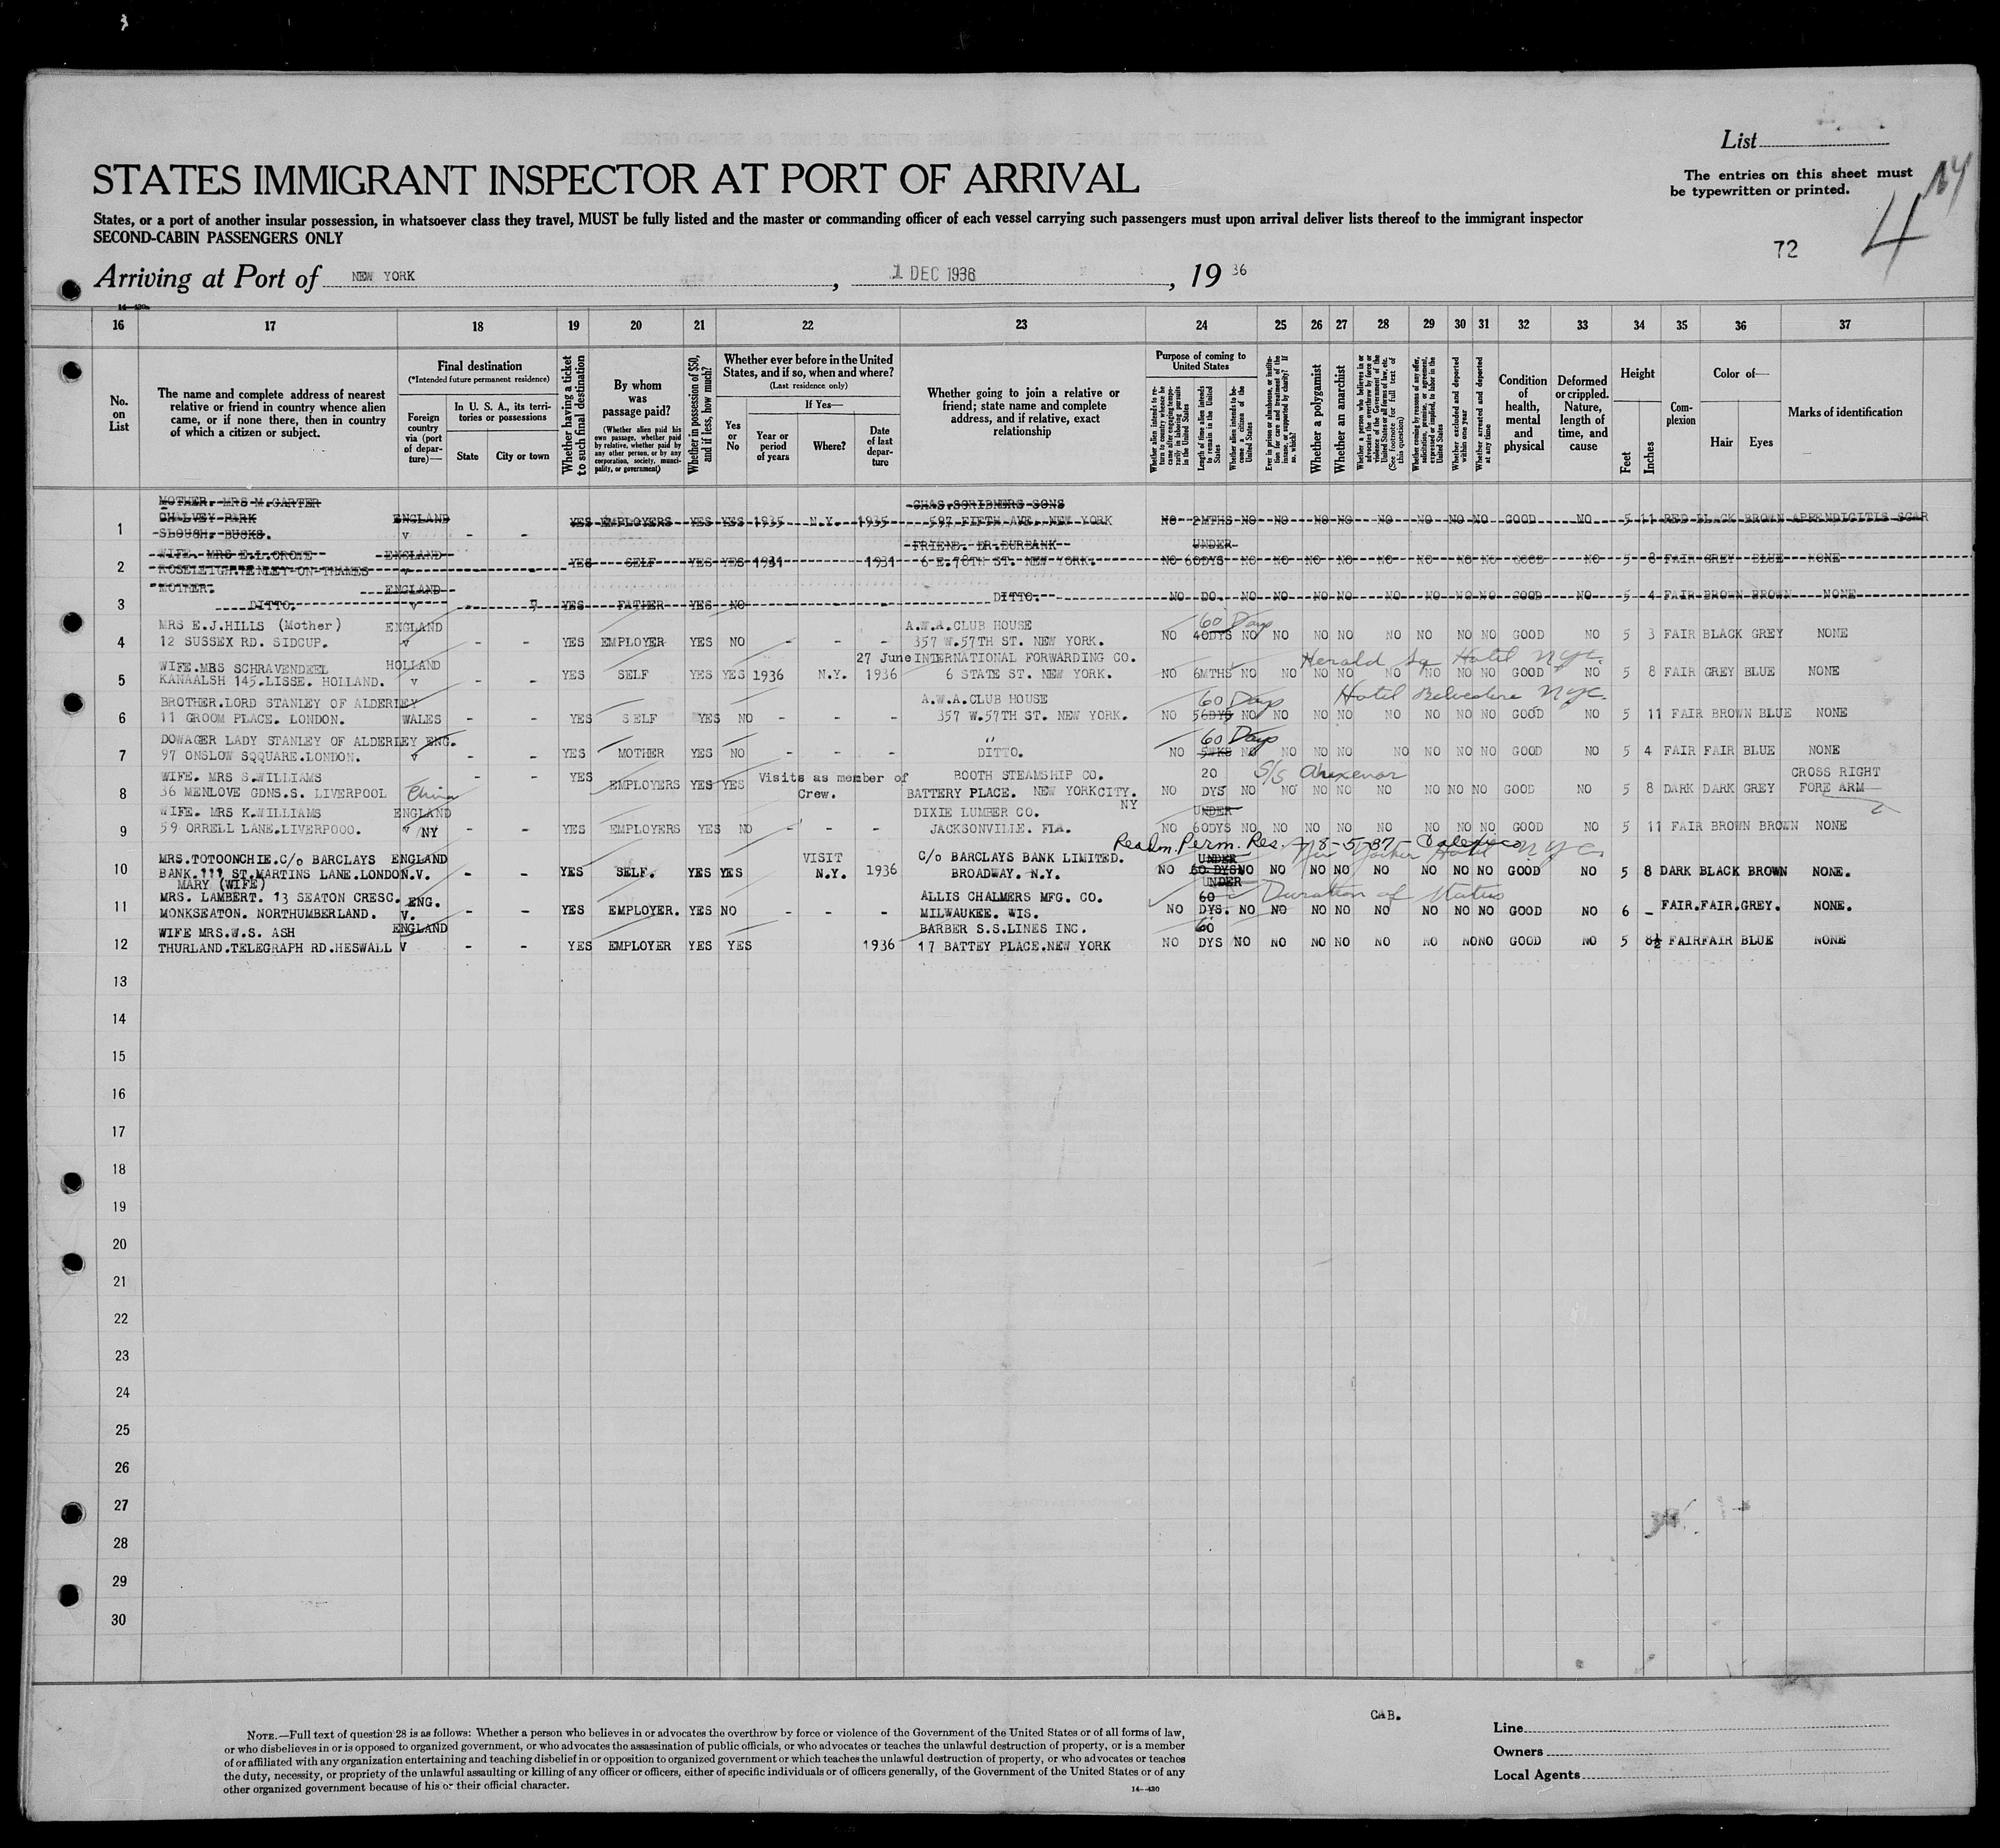 List
The entries on this sheet must
be typewritten or printed.
NY
4
72
STATES IMMIGRANT INSPECTOR AT PORT OF ARRIVAL
States, or a port of another insular possession, in whatsoever class they travel, MUST be fully listed and the master or commanding officer of each vessel carrying such passengers must upon arrival deliver lists thereof to the immigrant inspector
SECOND-CABIN PASSENGERS ONLY
Arriving at Port of NEW YORK , 1 DEC 1936 , 19 36
14-430
16 17 18 19 20 21 22 23 24 25 26 27 28 29 30 31 32 33 34 35 36 37
No. on List
The name and complete address of nearest relative or friend in country whence alien came, or if none there, then in country of which a citizen or subject.
Final destination
(*Intended future permanent residence)
Foreign country via (port of departure)—
In U. S. A., its territories or possessions
State City or town
Whether having a ticket to such final destination
By whom was passage paid?
(Whether alien paid his own passage, whether paid by relative, whether paid by any other person, or by any corporation, society, municipality, or government)
Whether in possession of $50, and if less, how much?
Whether ever before in the United States, and if so, when and where?
(Last residence only)
Yes or No
If Yes—
Year or period of years Where? Date of last departure
Whether going to join a relative or friend; state name and complete address, and if relative, exact relationship
Purpose of coming to United States
Whether alien intends to return to country whence he came after engaging temporarily in laboring pursuits in the United States
Length of time alien intends to remain in the United States
Whether alien intends to become a citizen of the United States
Ever in prison or almshouse, or institution for care and treatment of the insane, or supported by charity? If so, which?
Whether a polygamist
Whether an anarchist
Whether a person who believes in or advocates the overthrow by force or violence of the Government of the United States or all forms of law, etc. (See footnote for full text of this question)
Whether coming by reasons of any offer, solicitation, promise, or agreement, expressed or implied, to labor in the United States
Whether excluded and deported within one year
Whether arrested and deported at any time
Condition of health, mental and physical
Deformed or crippled. Nature, length of time, and cause
Height
Feet Inches
Complexion
Color of—
Hair Eyes
Marks of identification
MOTHER. MRS M.GARTER CHAS.SCRIBNERS SONS
1 CHALVEY PARK ENGLAND YES EMPLOYERS YES YES 1935 N.Y. 1935 597 FIFTH AVE. NEW YORK NO 2MTHS NO NO NO NO NO NO NO NO GOOD NO 5 11 RED BLACK BROWN APPENDICITIS SCAR
SLOUGH. BUCKS. v - -
WIFE. MRS E.L.GROVE ENGLAND FRIEND. DR.BURBANK UNDER
2 ROSELEIGH.HENLEY-ON-THAMES v YES SELF YES YES 1931 1931 6 E.78TH ST. NEW YORK. NO 60DYS NO NO NO NO NO NO NO NO GOOD NO 5 8 FAIR GREY BLUE NONE
MOTHER. ENGLAND
3 DITTO. v YES FATHER YES NO DITTO. NO DO. NO NO NO NO NO NO NO NO GOOD NO 5 4 FAIR BROWN BROWN NONE
MRS E.J.HILLS (Mother) ENGLAND A.W.A.CLUB HOUSE 60 Days
4 12 SUSSEX RD. SIDCUP. v - - YES EMPLOYER YES NO - - - 357 W.57TH ST. NEW YORK. NO 40DYS NO NO NO NO NO NO NO NO GOOD NO 5 3 FAIR BLACK GREY NONE
WIFE.MRS SCHRAVENDEEL HOLLAND 27 June INTERNATIONAL FORWARDING CO. Herald Sq Hotel NYC.
5 KANAALSH 145.LISSE. HOLLAND. v - - YES SELF YES YES 1936 N.Y. 1936 6 STATE ST. NEW YORK. NO 6MTHS NO NO NO NO NO NO NO NO GOOD NO 5 8 FAIR GREY BLUE NONE
BROTHER.LORD STANLEY OF ALDERLEY A.W.A.CLUB HOUSE 60 Days Hotel Belvedere NYC.
6 11 GROOM PLACE. LONDON. WALES - - YES SELF YES NO - - - 357 W.57TH ST. NEW YORK. NO 56DYS NO NO NO NO NO NO NO NO GOOD NO 5 11 FAIR BROWN BLUE NONE
DOWAGER LADY STANLEY OF ALDERLEY ENG. " 60 Days
7 97 ONSLOW SQQUARE.LONDON. v - - YES MOTHER YES NO - - - DITTO. NO 5WKS NO NO NO NO NO NO NO NO GOOD NO 5 4 FAIR FAIR BLUE NONE
WIFE. MRS S.WILLIAMS - - YES Visits as member of BOOTH STEAMSHIP CO. 20 S/S CROSS RIGHT
8 36 MENLOVE GDNS.S. LIVERPOOL China EMPLOYERS YES YES Crew. BATTERY PLACE. NEW YORKCITY. NO DYS NO NO NO NO NO NO NO NO GOOD NO 5 8 DARK DARK GREY FORE ARM
WIFE. MRS K.WILLIAMS ENGLAND DIXIE LUMBER CO. NY UNDER
9 59 ORRELL LANE.LIVERPOOO. v /NY - YES EMPLOYERS YES NO - - - JACKSONVILLE. FLA. NO 60DYS NO NO NO NO NO NO NO NO GOOD NO 5 11 FAIR BROWN BROWN NONE
Readm. Perm. Res. - 8-5-37 - Calexico New Yorker Hotel NYC.
MRS.TOTOONCHIE.C/o BARCLAYS ENGLAND VISIT C/o BARCLAYS BANK LIMITED. UNDER
10 BANK.111 ST.MARTINS LANE.LONDON. V. - - YES SELF. YES YES N.Y. 1936 BROADWAY. N.Y. NO 60 DYS NO NO NO NO NO NO NO NO GOOD NO 5 8 DARK BLACK BROWN NONE.
MARY (WIFE) UNDER
MRS. LAMBERT. 13 SEATON CRESC. ENG. ALLIS CHALMERS MFG. CO. 60 Duration of Status
11 MONKSEATON. NORTHUMBERLAND. V. - - YES EMPLOYER. YES NO - - - MILWAUKEE. WIS. NO DYS. NO NO NO NO NO NO NO NO GOOD NO 6 - FAIR.FAIR.GREY. NONE.
WIFE MRS.W.S. ASH ENGLAND BARBER S.S.LINES INC. 60
12 THURLAND.TELEGRAPH RD.HESWALL V - - YES EMPLOYER YES YES 1936 17 BATTEY PLACE.NEW YORK NO DYS NO NO NO NO NO NO NO NO GOOD NO 5 8½ FAIR FAIR BLUE NONE
13
14
15
16
17
18
19
20
21
22
23
24
25
26
27
28
29
30
CAB.
NOTE.—Full text of question 28 is as follows: Whether a person who believes in or advocates the overthrow by force or violence of the Government of the United States or of all forms of law,
or who disbelieves in or is opposed to organized government, or who advocates the assassination of public officials, or who advocates or teaches the unlawful destruction of property, or is a member
of or affiliated with any organization entertaining and teaching disbelief in or opposition to organized government or which teaches the unlawful destruction of property, or who advocates or teaches
the duty, necessity, or propriety of the unlawful assaulting or killing of any officer or officers, either of specific individuals or of officers generally, of the Government of the United States or of any
other organized government because of his or their official character.
14-430
Line
Owners
Local Agents